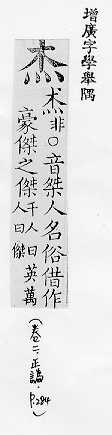 增廣字學舉隅
杰
非○音桀人名俗借作
豪傑之傑千人曰英萬
人曰傑
(卷二、正譌，P.284)